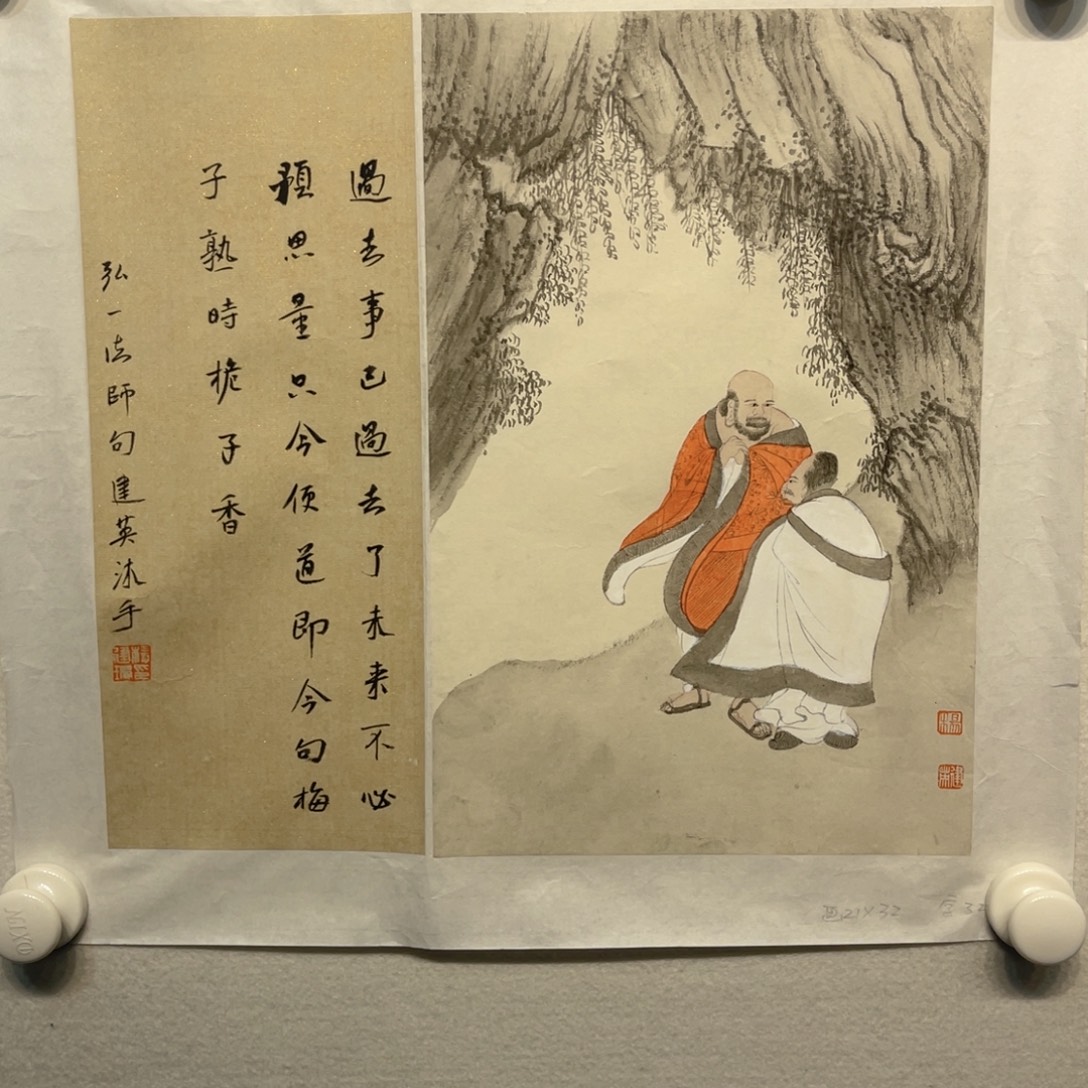 過去事已過去了未来不必
預思量只今便道即今句梅
子熟時栀子香
弘一法師句建英沐手
画21×32